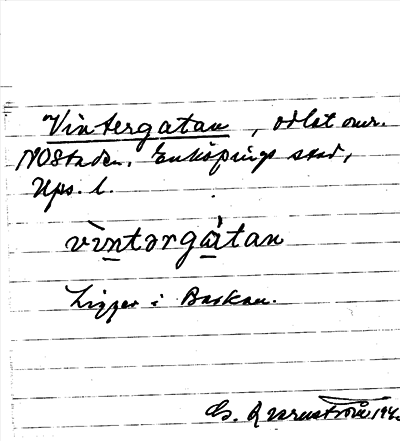 Vintergatan, odlat omr.
NOstaden, Enköpings stad,
Ups. l.
vìntərgàtan
Ligger i Baskan.
G. Qvarnström 194